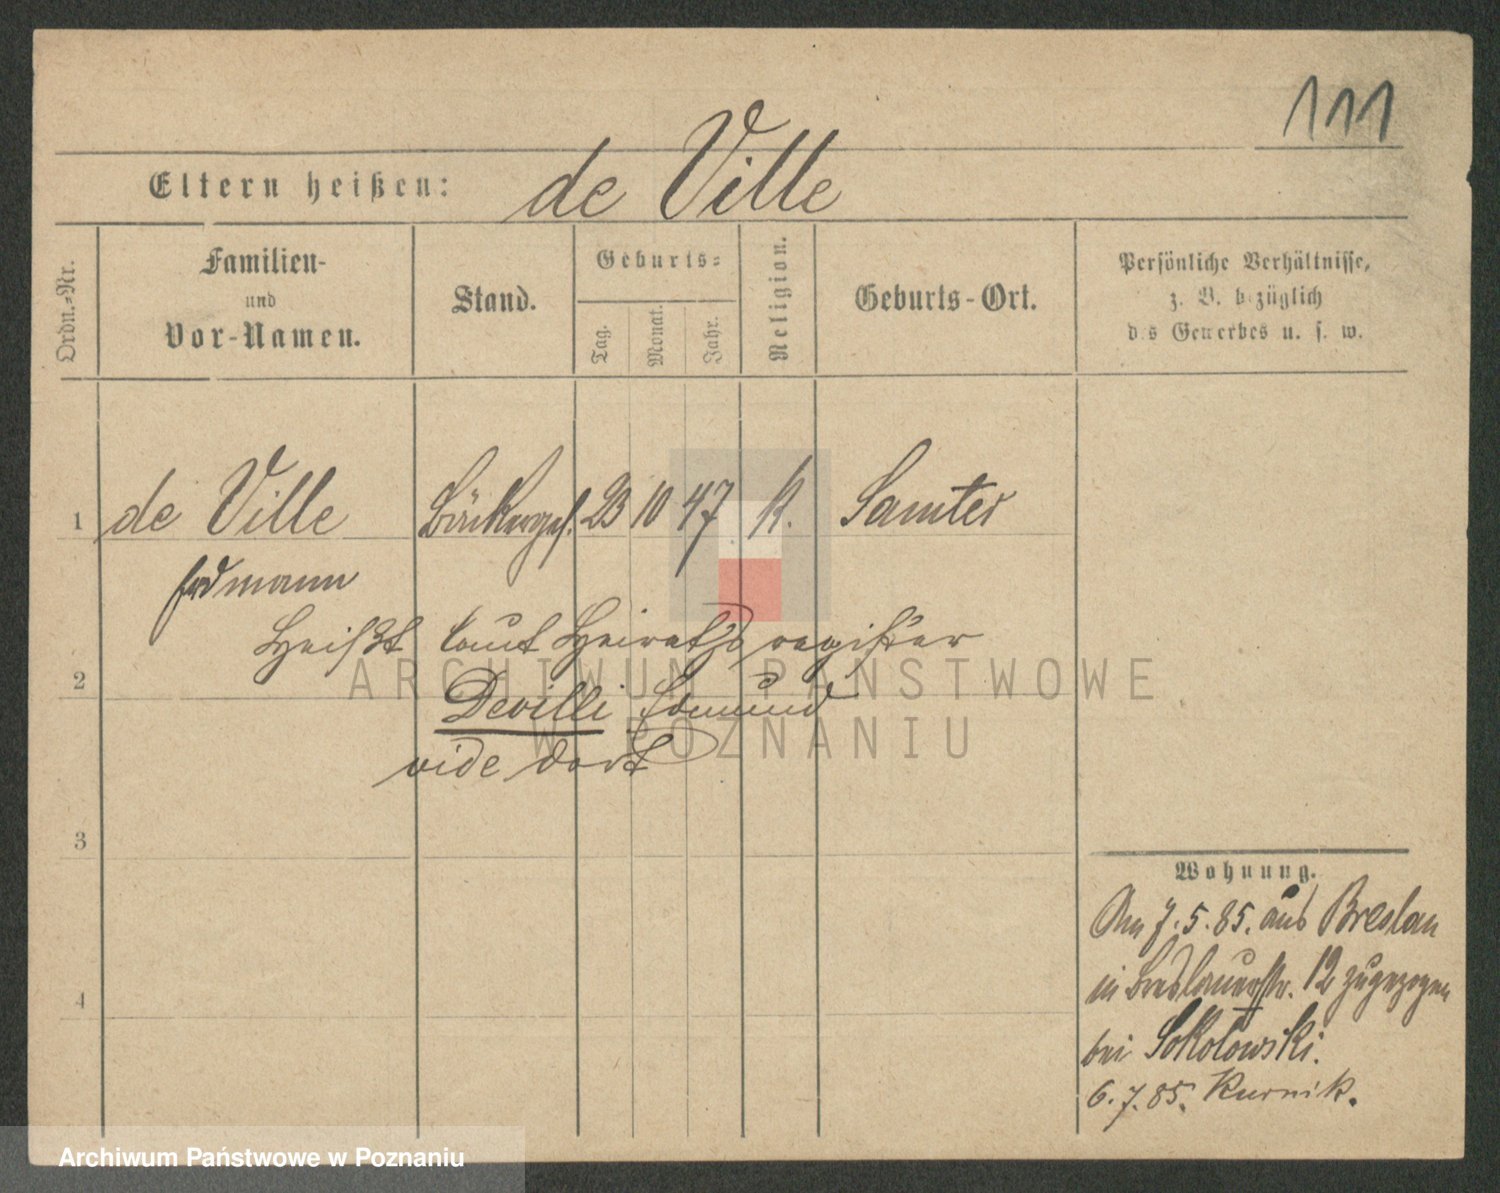 111
Eltern heißen: de Ville
Ordn.-Nr.
Familien-
und
Vor-Namen.
Stand.
Geburts-
Tag.
Monat.
Jahr.
Religion.
Geburts-Ort.
Persönliche Verhältnisse,
z. B. bezüglich
des Gewerbes u. s. w.
1 de Ville Bäckerges. 23 10 47 k. Samter
Erdmann
Heißt laut Heiratsregister
2
Devilli Edmund
vide dort
3
4
Wohnung.
Am 7.5.85. aus Breslau
in Breslauerstr. 12 zugezogen
bei Sokolowski.
6.7.85. Kurnik.
ARCHIWUM PAŃSTWOWE
W POZNANIU
Archiwum Państwowe w Poznaniu